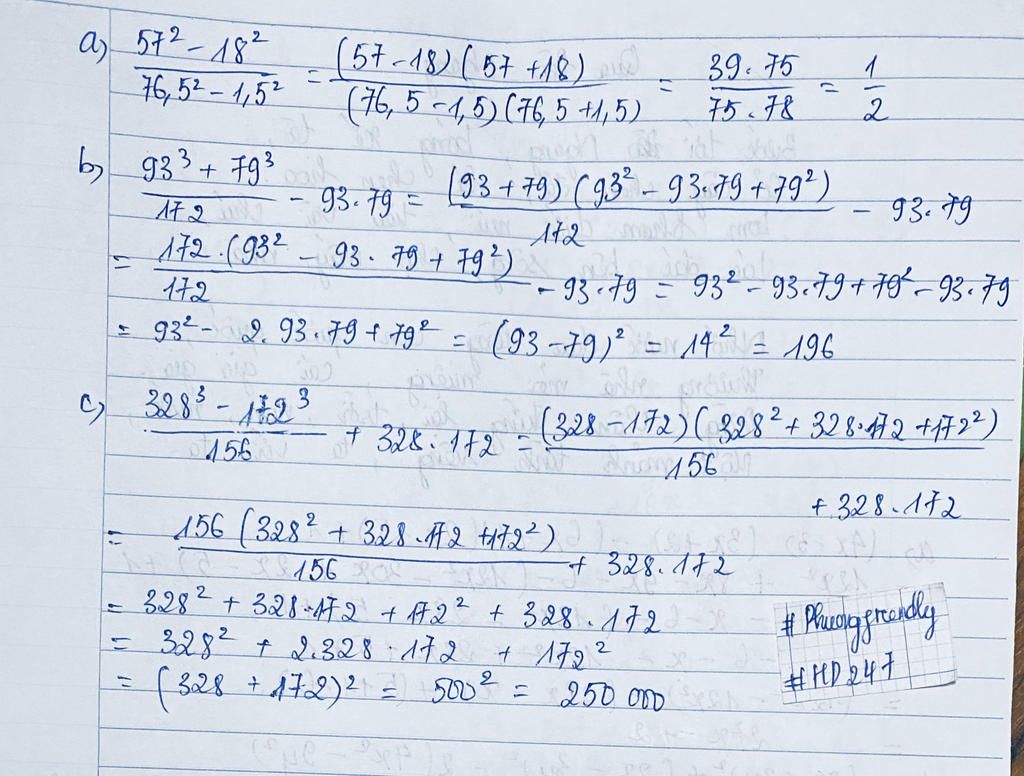 a) (57² - 18²)/(76,5² - 1,5²) = ((57 - 18)(57 + 18))/((76,5 - 1,5)(76,5 + 1,5)) = (39.75)/(75.78) = 1/2
b) (93³ + 79³)/172 - 93.79 = ((93 + 79)(93² - 93.79 + 79²))/172 - 93.79
= (172.(93² - 93.79 + 79²))/172 - 93.79 = 93² - 93.79 + 79² - 93.79
= 93² - 2.93.79 + 79² = (93 - 79)² = 14² = 196
c) (328³ - 172³)/156 + 328.172 = ((328 - 172)(328² + 328.172 + 172²))/156
+ 328.172
= (156(328² + 328.172 + 172²))/156 + 328.172
= 328² + 328.172 + 172² + 328.172
= 328² + 2.328.172 + 172²
= (328 + 172)² = 500² = 250 000
# Phuonggreendly
# HD247